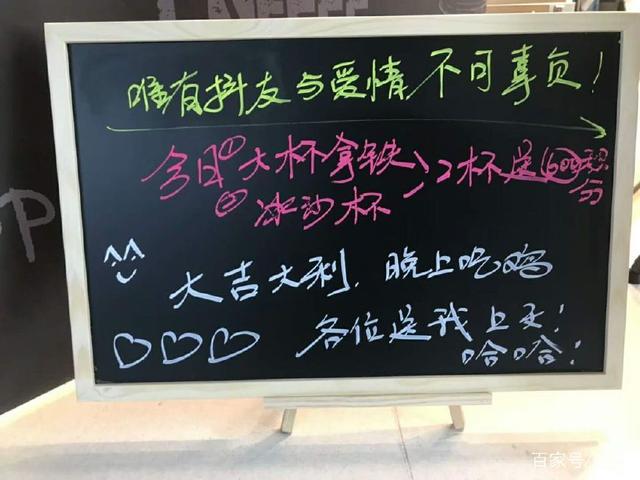 唯有抖友与爱情不可辜负！
今日①大杯拿铁 2杯送600积分
②冰沙杯
大吉大利，晚上吃鸡
各位送我上天！
哈哈！
百家号